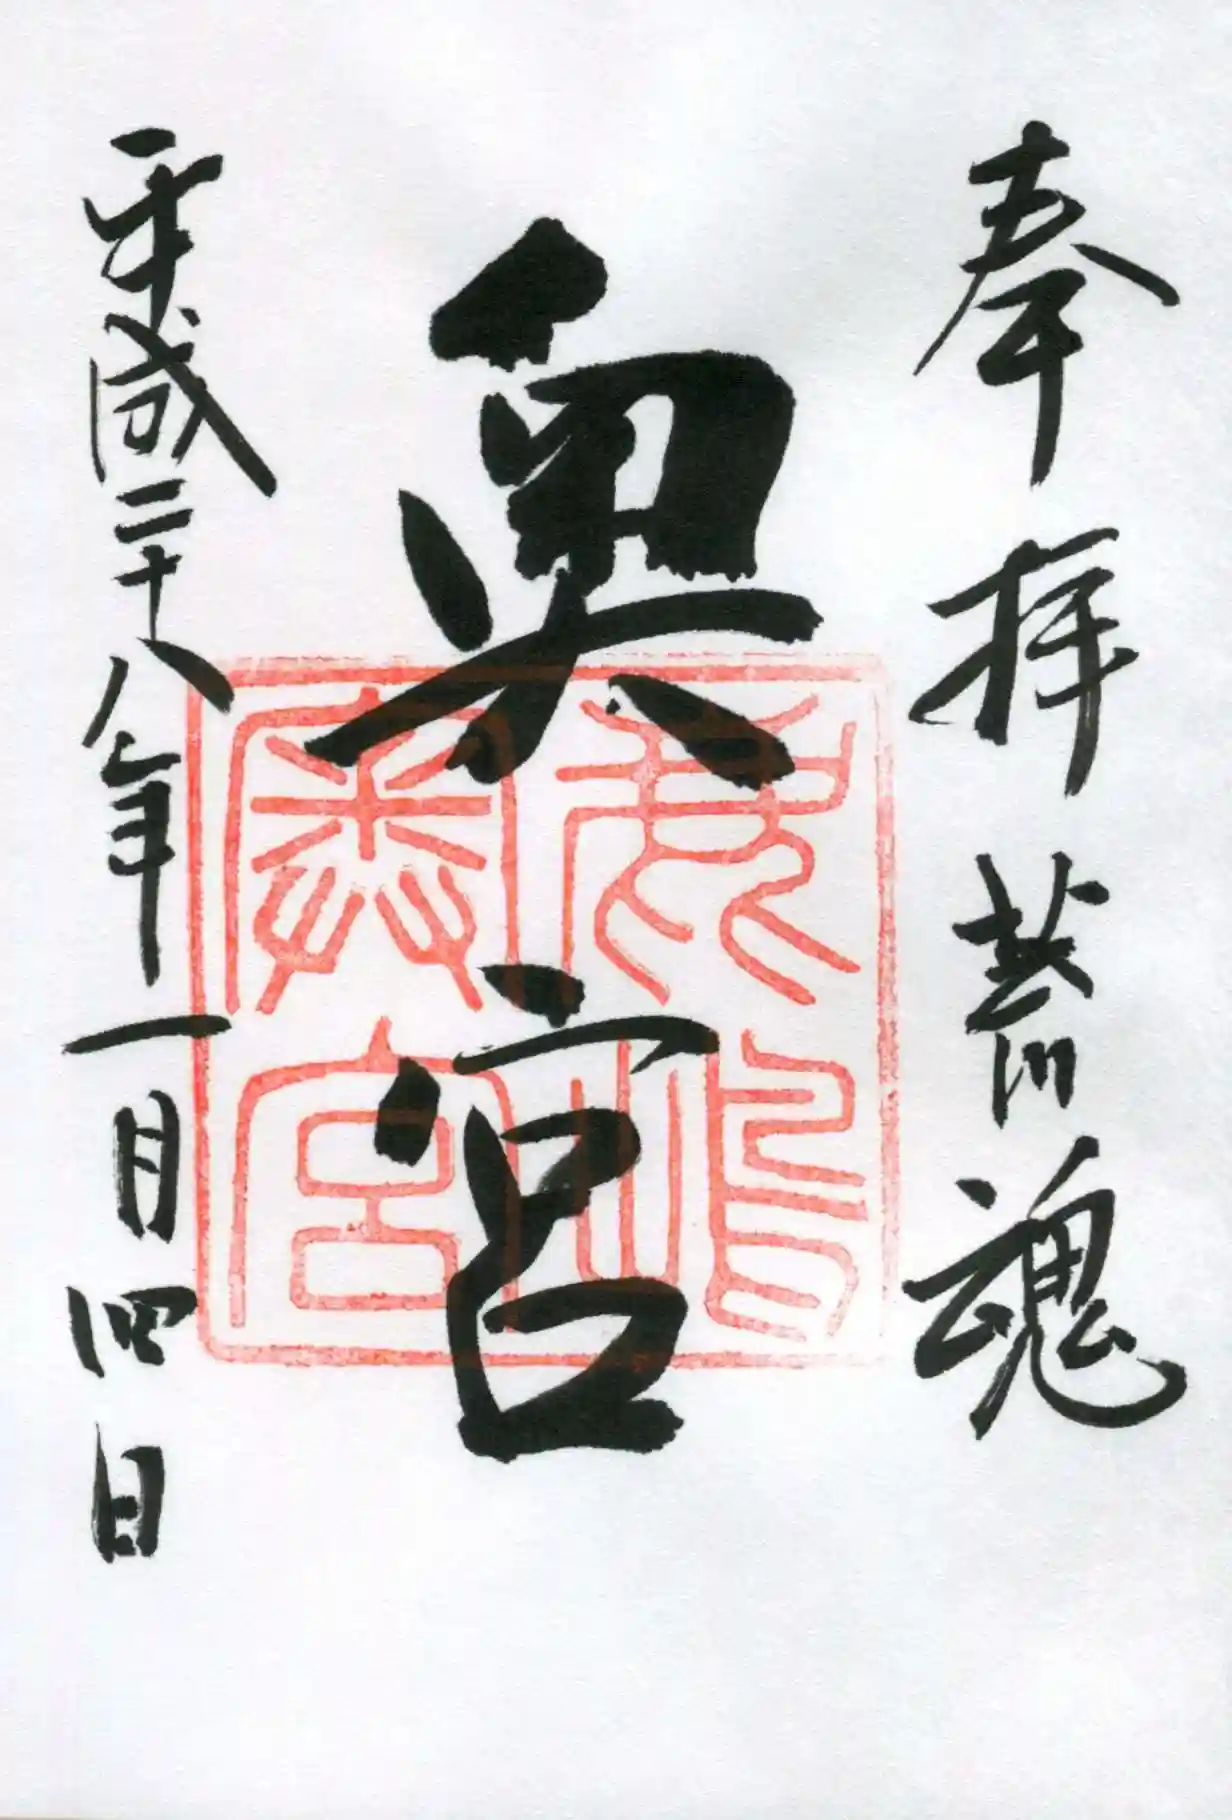 奉拝荒魂
奥宮
鹿嶋
奥宮
平成二十八年一月四日